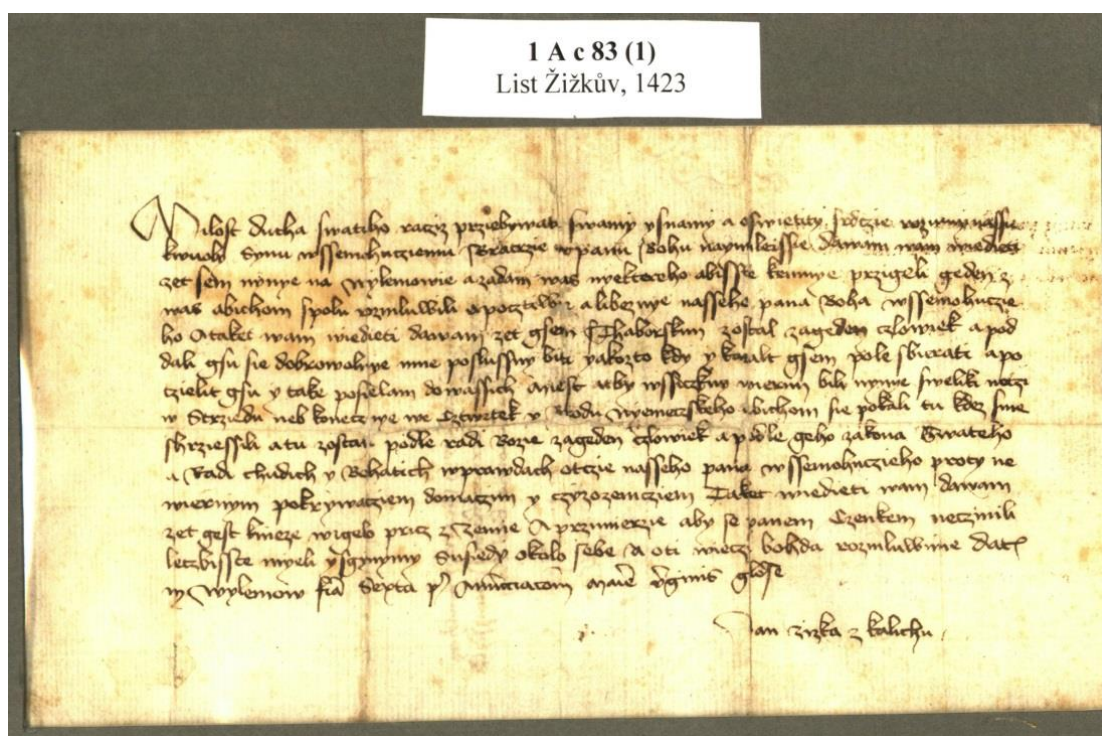 1 A c 83 (1)
List Žižkův, 1423
Milost ducha swatiho racziz prziebywati swamy ysnamy a oswietity srdczie rozumy nassie
Synu wssemohucziemu Bratrzie wpanu Bohu naymileissie dawam wam wiedieti
zet sem nynye na wylemowie azadam was nyektereho abisste kemnye przigeli geden z
was abichom spolu rozmluwili opocztiwe alibeznye nasseho pana Boha wssemohuczie
ho Ataket wam wiedieti dawam zet gsem sThaborskim zostal zageden czlowiek apod
dali gsu sie dobrowolnye mne poslussny biti yakozto kdy y koralt gsem pole sbierati apo
czielit gsu y take posielam dowassich miest atby wssiczkny wierni bili nynye
w Strziedu neb konecznye we Cztwrtek y Brodu Nyemeczskeho abichom sie potkali tu kdez sme
shrziessili atu zostati podle radi Bozie zageden czlowiek apodle geho zakona Swateho
a Radi chudich y Bohatich wprawdach otczie nasseho pana wssemohuczieho proty ne
wiernym pokrywacziem domaczim y czyzozemcziem Taket wiedieti wam dawam
zet gest knieze wigelo pricz zZemie A przimierzie aby se panem Czenkem neczinili
leczbisste myeli ysgynymy Susedy okolo sebe A oti wieczi bohda rozmluwime Dat
w Wylemow fia Sexta p Annuciacom Marie virginis glose
Jan zizka z kalichu